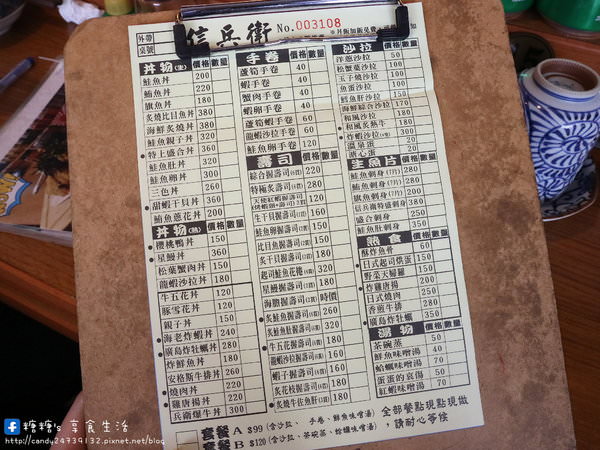 外帶
桌號
信兵衛 No.003108
丼物(生) 價格 數量
鮭魚丼 200
鮪魚丼 220
旗魚丼 180
炙燒比目魚丼 380
海鮮炙燒丼 360
鮭魚親子丼 320
特上盛合丼 360
鮭魚肚丼 320
鮭魚卵丼 300
三色丼 260
甜蝦干貝丼 360
鮪魚蔥花丼 200
丼物(熟) 價格 數量
櫻桃鴨丼 150
星鰻丼 360
松葉蟹肉丼 150
龍蝦沙拉丼 180
牛五花丼 120
豚雪花丼 120
親子丼 150
海老炸蝦丼 240
廣島炸牡蠣丼 280
炸鮮魚丼 180
安格斯牛排丼 260
燒肉丼 220
雞唐揚丼 220
兵衛爆牛丼 300
手卷 價格 數量
蘆筍手卷 40
蝦手卷 40
蟹肉手卷 40
蝦卵手卷 40
蘆筍蝦手卷 60
龍蝦沙拉手卷 60
鮭魚卵手卷 80
壽司 價格 數量
綜合握壽司 220
特極炙握壽司 280
生干貝握壽司 160
鮭魚卵握壽司 160
比目魚握壽司
炙干貝握壽司
起司鮭魚花捲 320
星鰻握壽司 180
海膽握壽司 時價
炙鮭魚握壽司
炙鮭魚肚握壽司
牛五花握壽司
龍蝦沙拉握壽司
蝦子握壽司 180
炙花枝握壽司 180
炙燒牛佐魚肝 180
沙拉 價格 數量
洋蔥沙拉 100
松蟹菜沙拉 100
玉子燒沙拉 100
魚蛋沙拉 100
鱈魚肝沙拉 150
海鮮綜合沙拉 170
和風沙拉
和風炙熱牛
炸蝦沙拉 300
溫泉蛋 20
溏心蛋 20
生魚片 價格 數量
鮭魚刺身(7片) 280
鮪魚刺身(7片)
旗魚刺身(7片)
信兵衛特盛刺身 380
盛合刺身 250
鮭魚肚刺身 350
熟食 價格 數量
酥炸魚骨 60
日式起司烘蛋 150
野菜天婦羅 150
炸雞唐揚 200
日式燒肉 200
香煎牛排 280
廣島炸牡蠣 350
湯物 價格 數量
茶碗蒸 50
鮮魚味噌湯 40
蛤蠣味噌湯 70
蛋蛋的哀傷 50
紅蝦味噌湯 70
套餐 A $99 (含沙拉、 手卷、鮮魚味噌湯)
套餐 B $120 (含沙拉、茶碗蒸、蛤蠣味噌湯)
全部餐點現點現做
,請耐心等候
糖糖's 享食生活
http://candy24739132.pixnet.net/blog